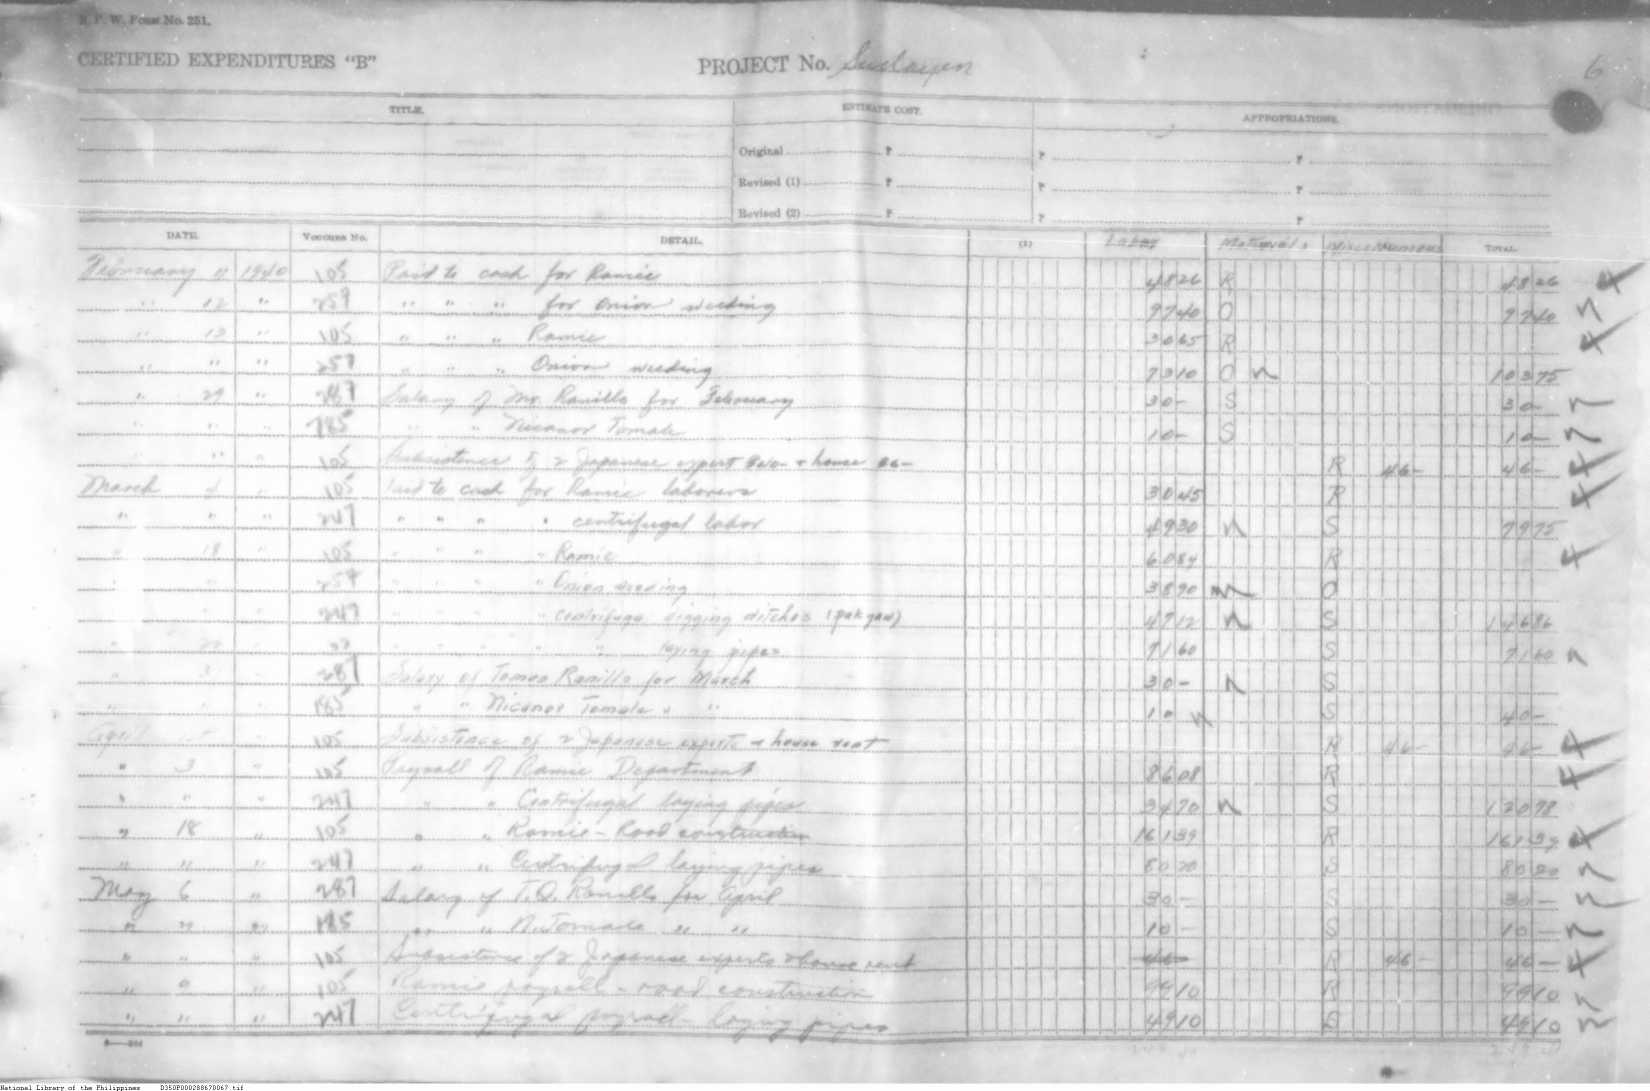 B. P. W. Form No. 251.
CERTIFIED EXPENDITURES "B" PROJECT No. 6
TITLE. ESTIMATE COST. APPROPRIATIONS.
Original ₱ ₱ ₱
Revised (1) ₱ ₱ ₱
Revised (2) ₱ ₱ ₱
DATE. VOUCHER No. DETAIL. (1) Labor Materials Miscellaneous TOTAL
February 11 1940 105 Paid to cash for Ramie 4826 R 4826
" 12 " 259 " " " for Onion weeding 9740 O 9740
" 13 " 105 " " " Ramie 3065 R
" " " 257 " " " Onion weeding 7310 O 10375
" 29 " 287 Salary of Mr. Ranillo for February 30- S 30-
" " " 785 " " Nicanor Tomale 10- S 10-
" " 105 Subsistence of 2 Japanese expert & house R 46- 46-
March " 105 Paid to cash for Ramie laborers 3045 R
" " " 247 " " " " centrifugal labor 4930 S 7975
" 18 " 105 " " " " Ramie 6084 R
" " 257 " " " " Onion weeding 3890 O
" " 247 " " " " centrifugal digging ditches 4712 S 14686
" " " " " " " laying pipes 7160 S 7160
" 31 287 Salary of Ranillo for March 30- S
" 185 " " Nicanor Tomale " " 10 S 40-
April " 105 Subsistence of 2 Japanese experts & house rent R 46- 46-
" 3 " 105 Payroll of Ramie Department 8608 R
" " " 247 " " Centrifugal laying pipes 3470 S 12078
" 18 " 105 " " Ramie - Road construction 16139 R 16139
" " " 247 " " Centrifugal laying pipes 8020 S 8020
May 6 " 287 Salary of T.Q. Ranillo for April 30- S 30-
" " " 185 " " N. Tomale " " 10- S 10-
" " " 105 Subsistence of 2 Japanese experts & house rent 46- R 46- 46-
" 9 " 105 Ramie payroll - road construction 9910 R 9910
" " " 247 Centrifugal payroll - laying pipes 4910 S 4910
National Library of the Philippines